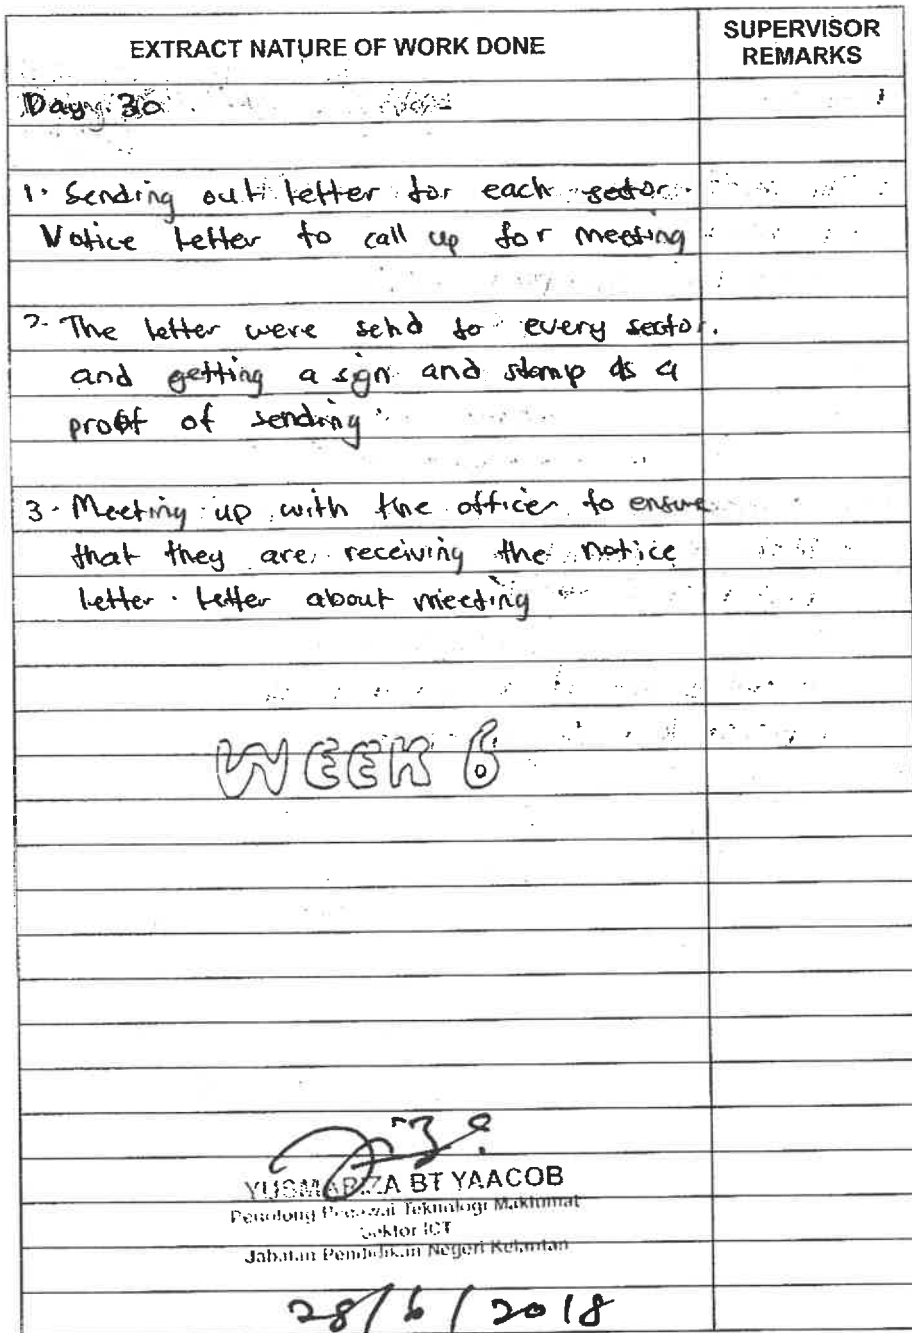 EXTRACT NATURE OF WORK DONE
SUPERVISOR
REMARKS
Day 30
1. Sending out letter for each sector.
Notice letter to call up for meeting
2. The letter were send to every sector.
and getting a sign and stamp as a
proof of sending.
3. Meeting up with the officer to ensure
that they are receiving the notice
letter. letter about meeting
WEEK 6
YUSMARIZA BT YAACOB
Penolong Pegawai Teknologi Maklumat
Sektor ICT
Jabatan Pendidikan Negeri Kelantan
28/6/2018